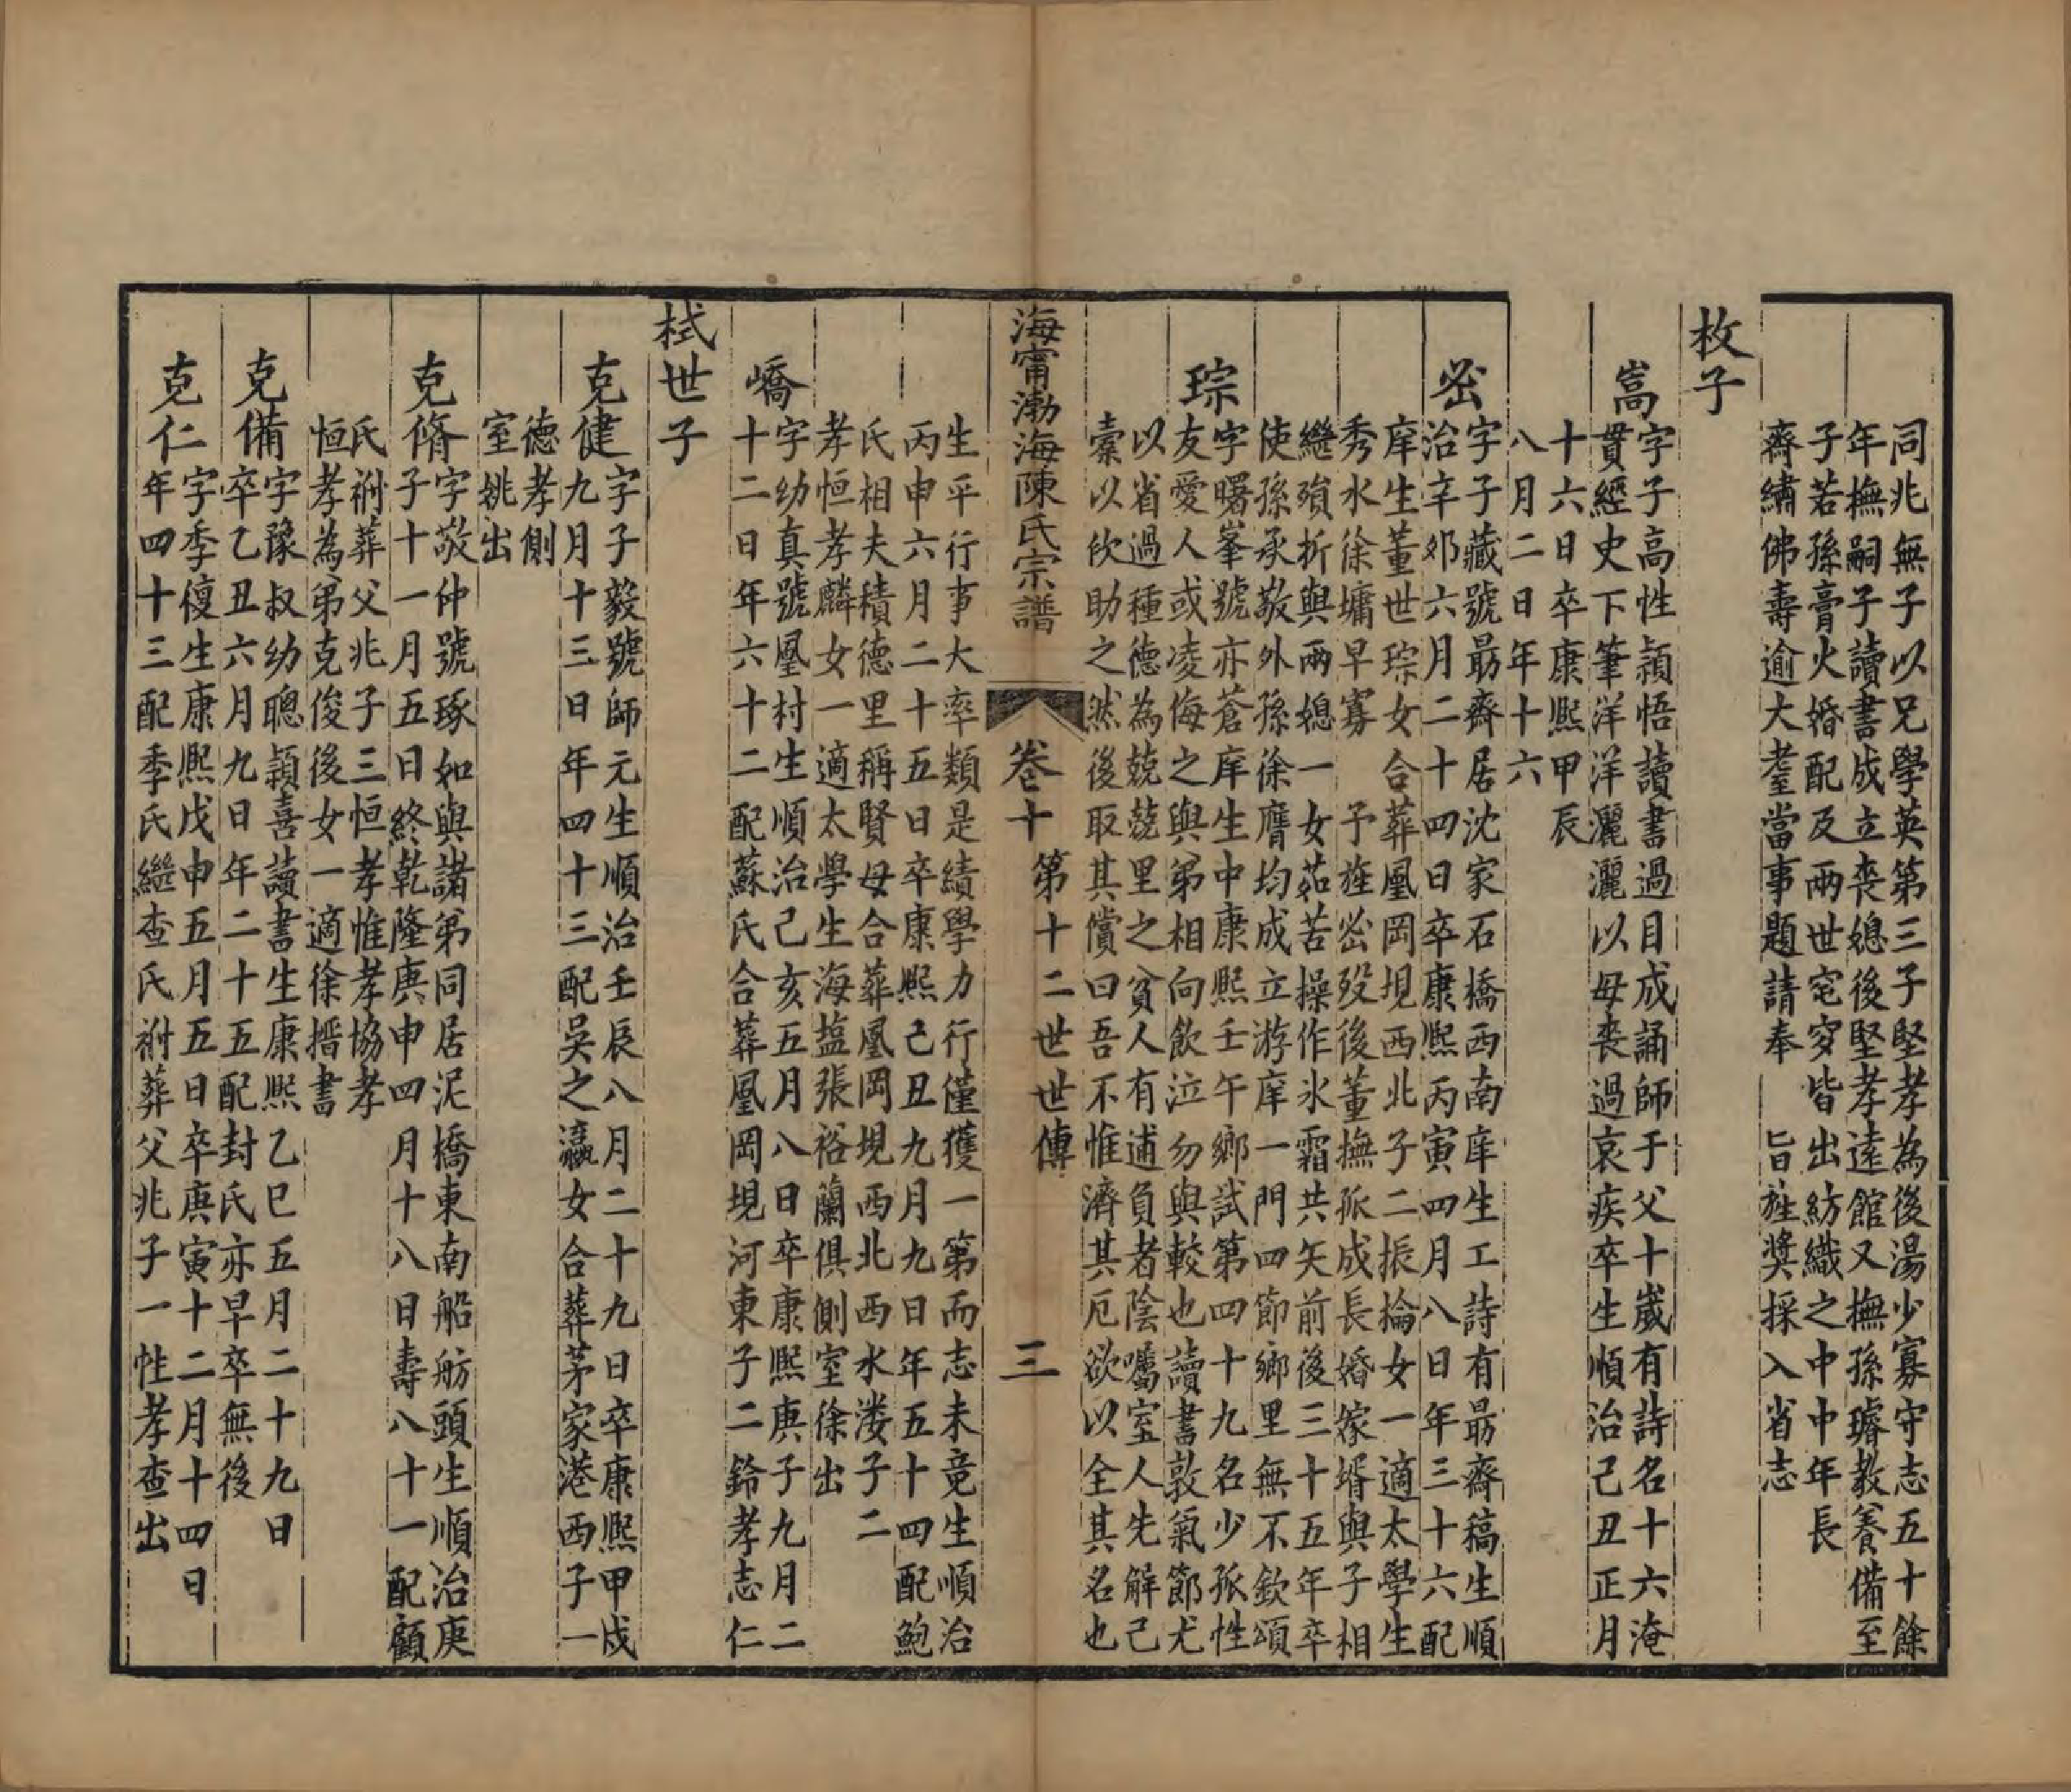 同兆無子以兄學英第三子堅孝為後湯少寡守志五十餘
年撫嗣子讀書成立喪媳後堅孝遠館又撫孫璿教養備至
子若孫膏火婚配及兩世窀穸皆出紡織之中中年長
齋繡佛壽逾大耋當事題請奉　旨旌奬採入省志
枚子
嵩
字子高性穎悟讀書過目成誦師于父十歲有詩名十六淹
貫經史下筆洋洋灑灑以母喪過哀疾卒生順治己丑正月
十六日卒康熙甲辰
八月二日年十六
岊
字子藏號最齋居沈家石橋西南庠生工詩有最齋稿生順
治辛卯六月二十四日卒康熙丙寅四月八日年三十六配
庠生董世琮女合葬鳳岡垷西北子二振掄女一適太學生
秀水徐墉早寡　予旌岊歿後董撫孤成長婚嫁壻與子相
繼殞折與兩媳一女茹苦操作氷霜共矢前後三十五年卒
使孫承敬外孫徐膺均成立游庠一門四節鄉里無不欽頌
琮
字曙峯號亦蒼庠生中康熙壬午鄉試第四十九名少孤性
友愛人或凌侮之與弟相向飲泣勿與較也讀書敦氣節尤
以省過種德為兢兢里之貧人有逋負者陰囑室人先解己
橐以佽助之然後取其償曰吾不惟濟其厄欲以全其名也
海甯渤海陳氏宗譜　卷十　第十二世世傳　三
生平行事大率類是績學力行僅獲一第而志未竟生順治
丙申六月二十五日卒康熙己丑九月九日年五十四配鮑
氏相夫積德里稱賢母合葬鳳岡垷西北西水漊子二
孝恒孝麟女一適太學生海塩張裕蘭俱側室徐出
嶠
字幼真號鳳村生順治己亥五月八日卒康熙庚子九月二
十二日年六十二配蘇氏合葬鳳岡垷河東子二鈴孝志仁
栻世子
克健
字子毅號師元生順治壬辰八月二十九日卒康熙甲戌
九月十三日年四十三配吳之瀛女合葬茅家港西子一
德孝側
室姚出
克脩
字敬仲號琢如與諸弟同居泥橋東南船舫頭生順治庚
子十一月五日終乾隆庚申四月十八日壽八十一配顧
氏祔葬父兆子三恒孝惟孝協孝
恒孝為弟克俊後女一適徐搢書
克備
字豫叔幼聰穎喜讀書生康熙乙巳五月二十九日
卒乙丑六月九日年二十五配封氏亦早卒無後
克仁
字季復生康熙戊申五月五日卒庚寅十二月十四日
年四十三配季氏繼查氏祔葬父兆子一性孝查出